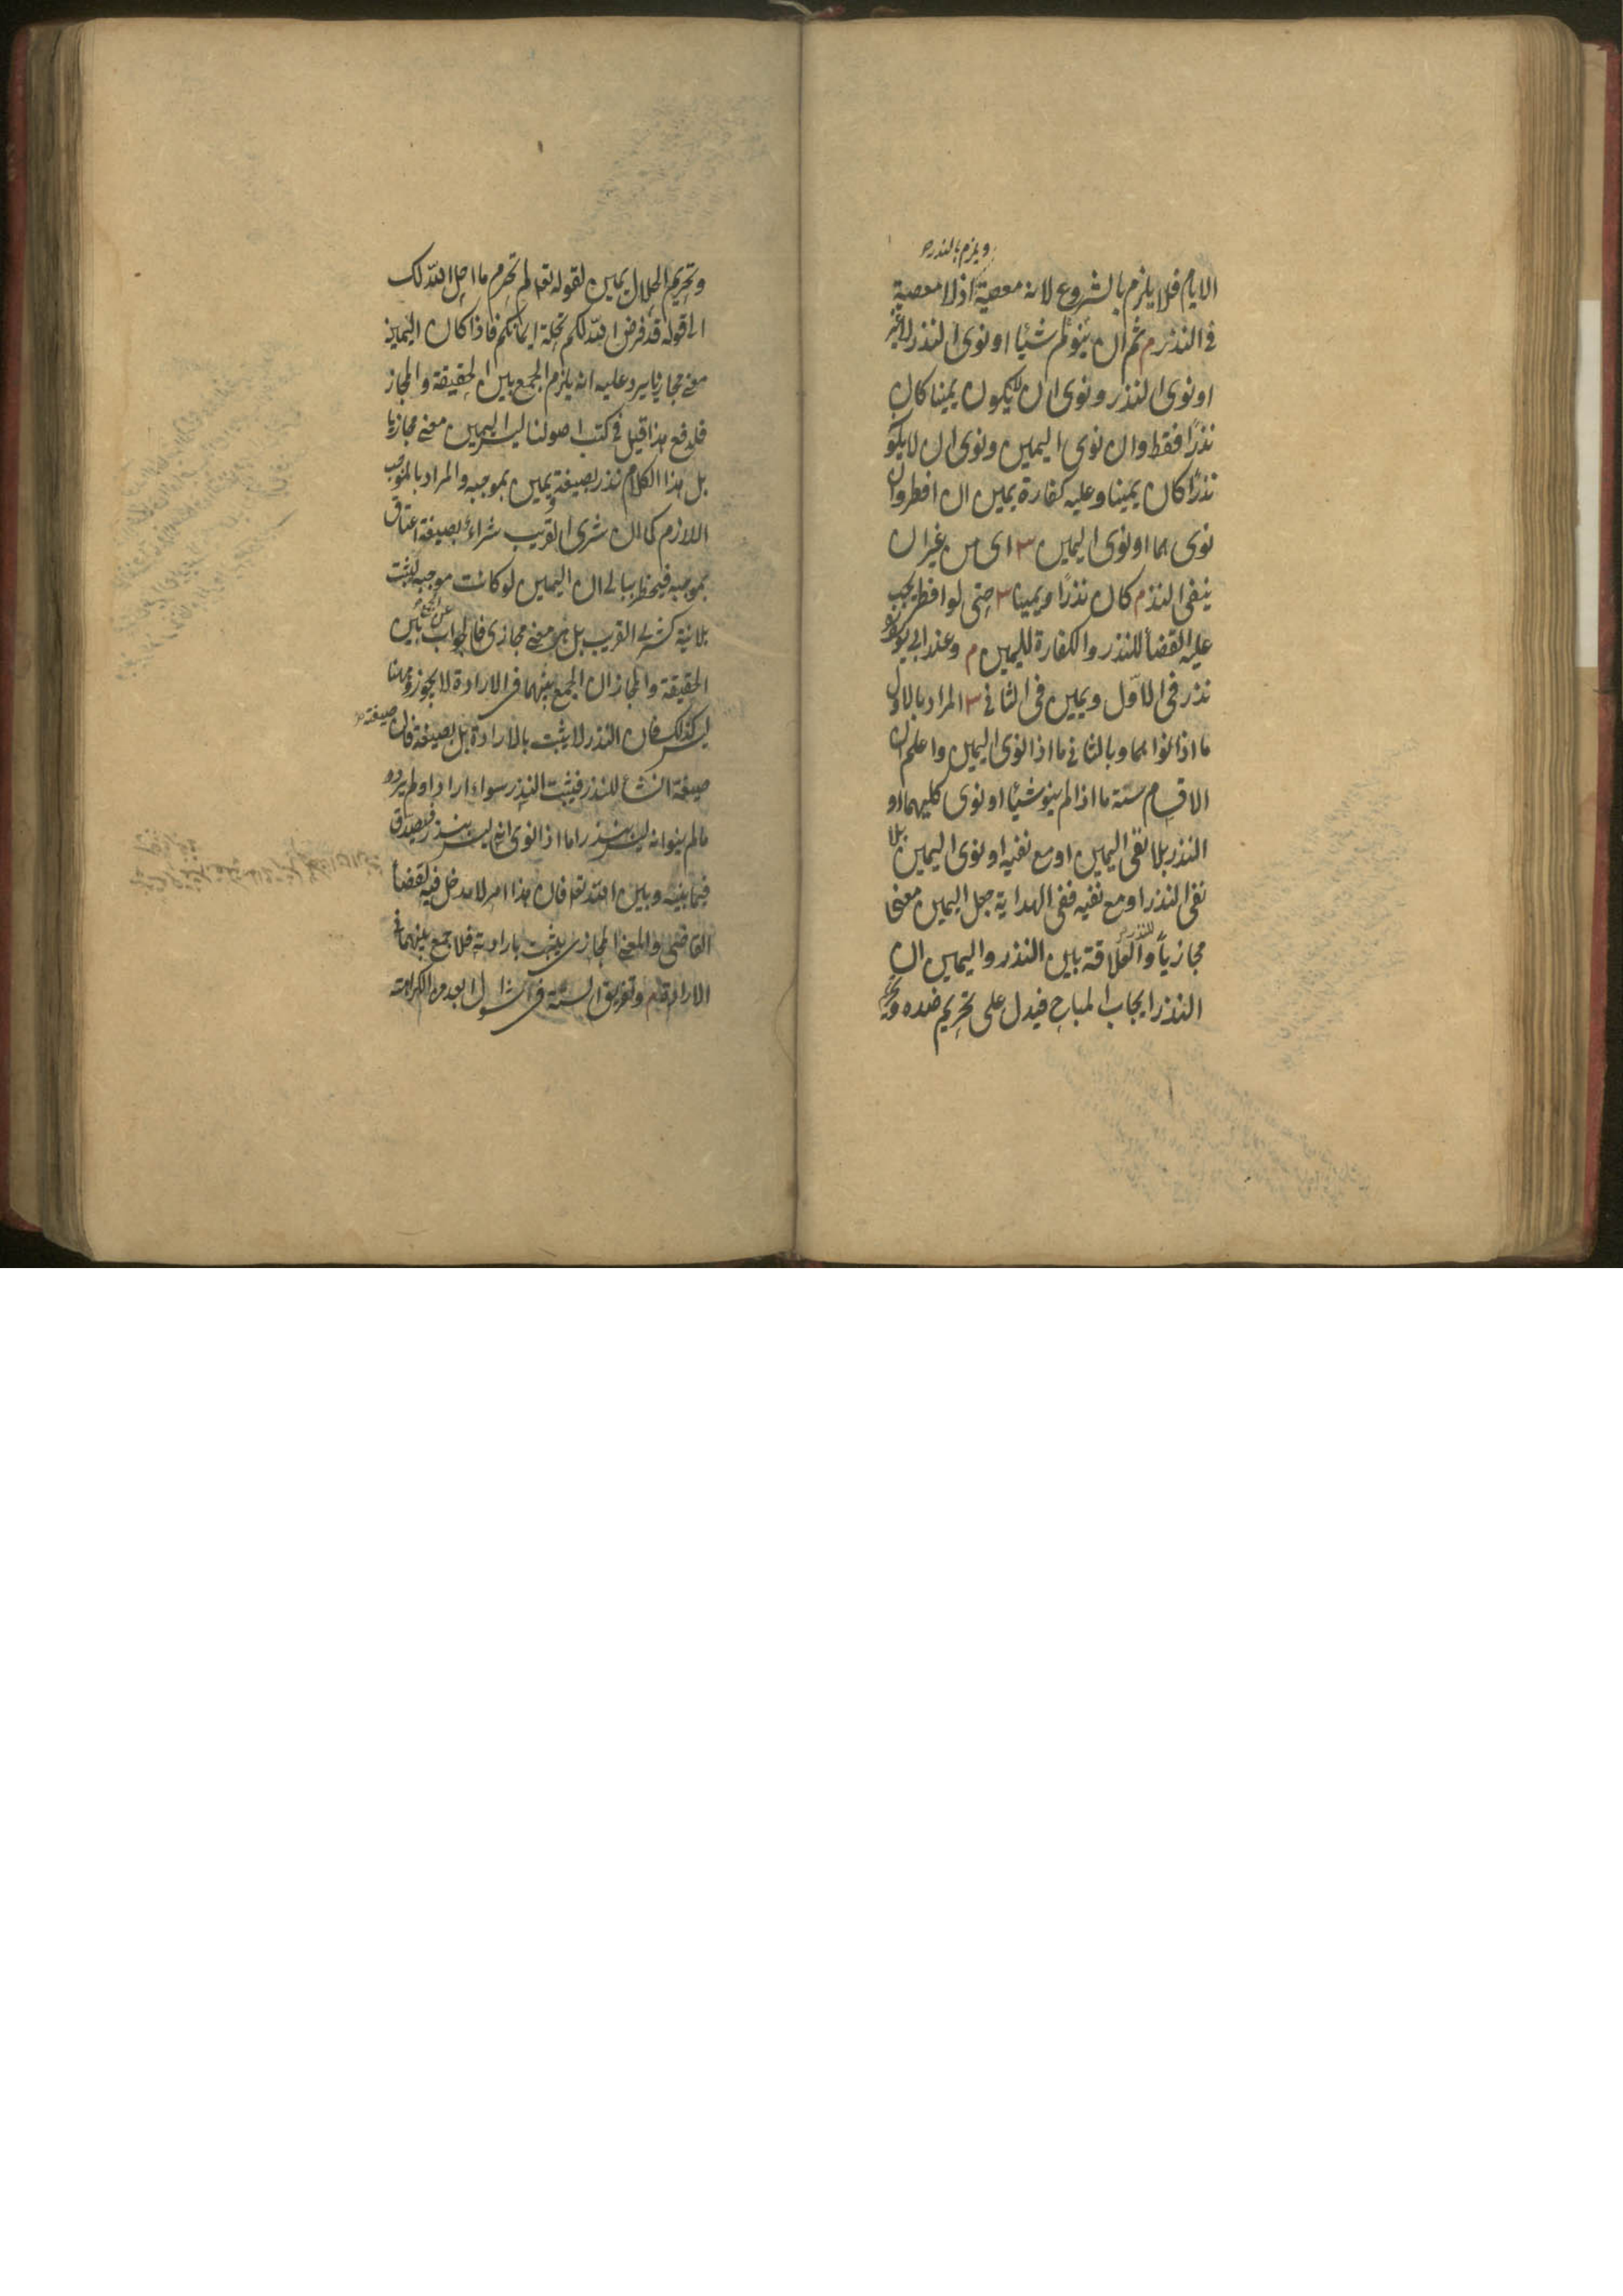 ويلزم بالنذر صح
الايام فلا يلزم بالشروع لانه معصية اذ لا معصية
في النذر م ثم ان لم ينو شيئا او نوى النذر لا غير
او نوى النذر ونوى ان لا يكون يمينا كان
نذرًا فقط وان نوى اليمين ونوى ان لا يكو
نذرًا كان يمينا وعليه كفارة يمين ان افطر وان
نوى هما او نوى اليمين س اى من غير ان
ينفى النذر م كان نذرًا ويمينا س حتى لو افطر يجب
عليه القضأ للنذر والكفارة لليمين م وعند ابي يوسف
نذر فى الاوّل ويمين فى الثاني س المراد بالاول
ما اذا نواهما وبالثاني ما اذا نوى اليمين واعلم ان
الاقسام ستة ما اذا لم ينو شيئا او نوى كليهما او
النذر بلا نفى اليمين او مع نفيه او نوى اليمين بلا
نفى النذر او مع نفيه ففى الهداية جعل اليمين معنى
مجازيًا والعلاقة بين النذر واليمين ان
النذر ايجاب المباح فيدل على تحريم ضده و
وتحريم الحلال يمين لقوله تعا لم تحرم ما احل اللّه لك
الى قوله قد فرض اللّه لكم تحلة ايمانكم فاذا كان اليمين
معنى مجازيا يرد عليه انه يلزم الجمع بين الحقيقة والمجاز
فلدفع هذا قيل في كتب اصولنا ليس اليمين معنى مجازيا
بل هذا الكلام نذر بصيغة يمين بموجبه والمراد بالموجب
اللازم كما ان شرى القريب شراء بصيغة اعتاق
بموجبه فيخطر ببالى ان اليمين لو كانت موجبه لثبت
بلا نية كشرى القريب بل هو معنى مجازى فالجواب عن الجمع بين
الحقيقة والمجاز ان الجمع بينهما فى الارادة لا يجوز وههنا
ليس كذلك فان النذر لا يثبت بالارادة بل بصيغة فان صيغته صح
صيغة انشأ للنذر فيثبت النذر سواء اراد او لم يرد
ما لم ينو انه ليس بنذر اما اذا نوى انه ليس بنذر فيصدق
فيما بينه وبين اللّه تعا فان هذا امر لا مدخل فيه لقضأ
القاضى والمعنى المجازى يثبت بارادته فلا جمع بينهما في
الارادة م وتفريق الستة فى شوال ابعد من الكراهة